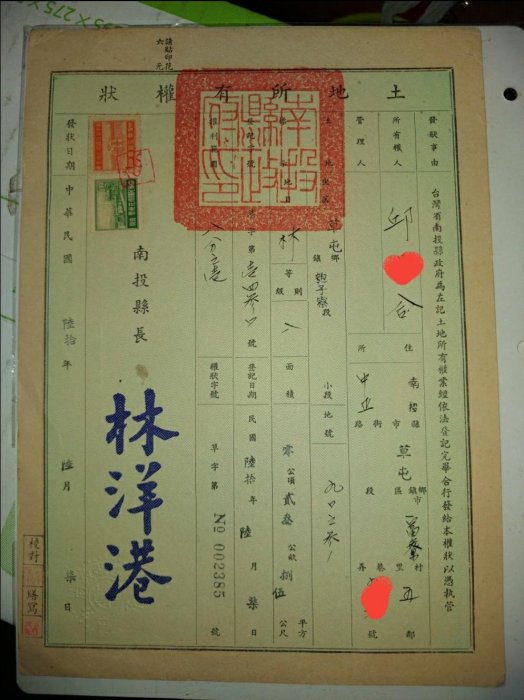 土地所有權狀
請貼印花六元
發狀事由
台灣省南投縣政府為左記土地所有權業經依法登記完畢合行發給本權狀以憑執管
所有權人 邱 合
管理人
住所 南投縣市 草屯鄉鎮市區 村里
中正路街 段 巷弄 號
草屯鄉鎮 匏子寮段 小段 地號
地目 林 等則級 八 面積 零公頃貳叁公畝捌伍平方公尺
字第壹四叁 號 登記日期 民國陸拾年陸月柒日
權利範圍 八分之壹 權狀字號 草字第 No 002385 號
南投縣政府印
南投縣長 林洋港
發狀日期 中華民國 陸拾年 陸月 柒日
校對
繕寫